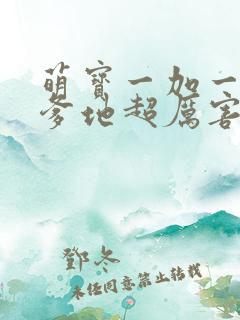 萌宝一加一
爹地超厉害
鄧冬
未经同意禁止转载